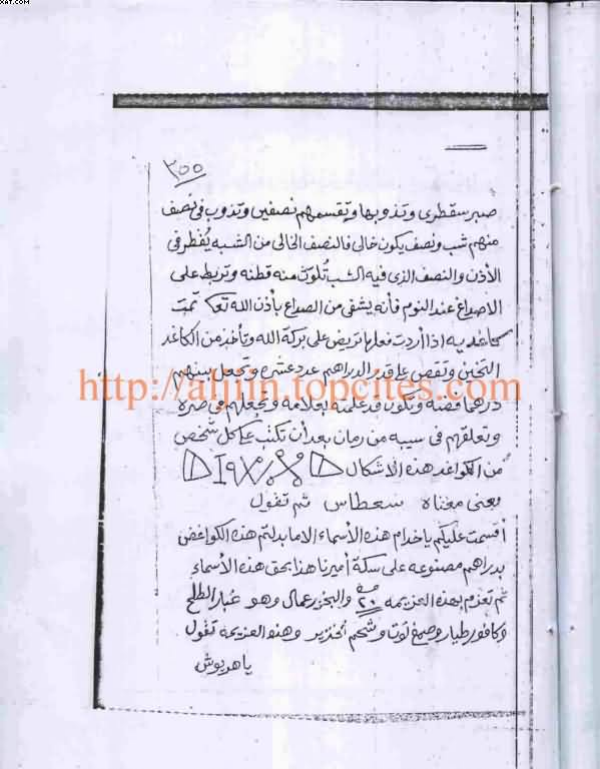 XAT.COM
٣٥٥
صبر سقطرى وتذوبها وتقسمهم نصفين وتذوب فى نصف
منهم شب ونصف يكون خالى فالنصف الخالى من الشبه يُقطر فى
الأذن والنصف الذى فيه الشب تُلوك منه قطنه وتربط على
الاصداغ عند النوم فأنه يشفى من الصداع بأذن الله تعا تمت
كاغديه اذا أردت فعلها تريض على بركة الله وتأخذ من الكاغد
الثخين وتقص على قدر الدراهم عدد عشره وتجعل بينهم
درهما فضه وتكون قد علمته بعلامه وتجعلهم فى صره
وتعلقهم فى سيبه من رمان بعد أن تكتب على كل شخص
من الكواغد هذه الاشكال
معنى معناه سعطاس ثم تقول
أقسمت عليكم ياخدام هذه الأسماء الا ما بدلتم هذه الكواغض
بدراهم مصنوعه على سكة أميرنا هذا بحق هذه الأسماء
ثم تعزم بهذه العزيمه ٢٠ مره والبخور عمال وهو غبار الطلح
وكافور طيار وصمغ توتا وشحم الخنزير وهذه العزيمه تقول
ياهريوش
http://aljiin.topcites.com